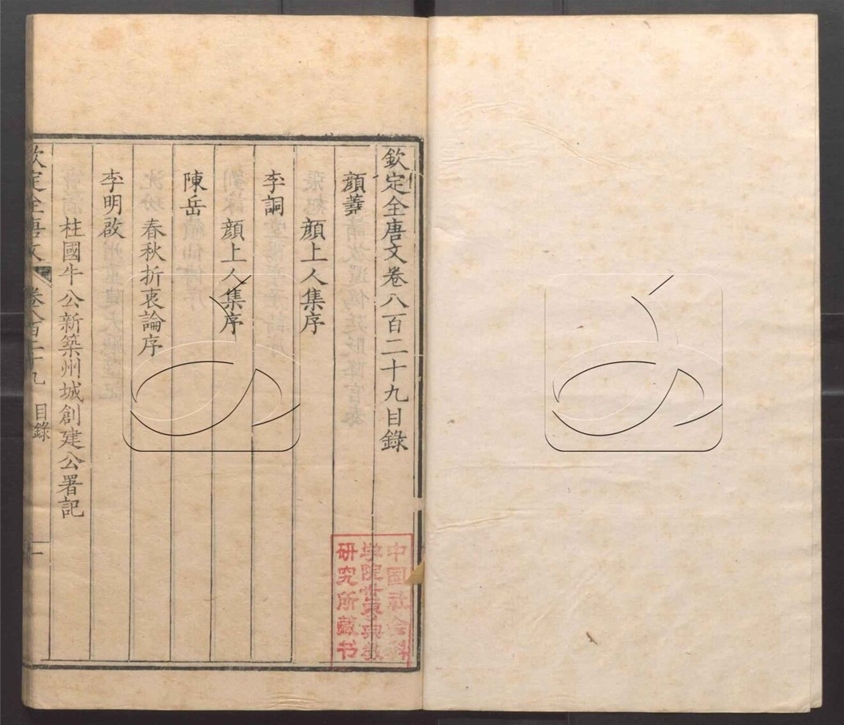 欽定全唐文卷八百二十九目錄
顏蕘
顏上人集序
李詷
顏上人集序
陳岳
春秋折衷論序
李明啟
柱國牛公新築州城創建公署記
欽定全唐文 卷八百二十九 目錄 一
中国社会科
学院世界宗教
研究所藏书